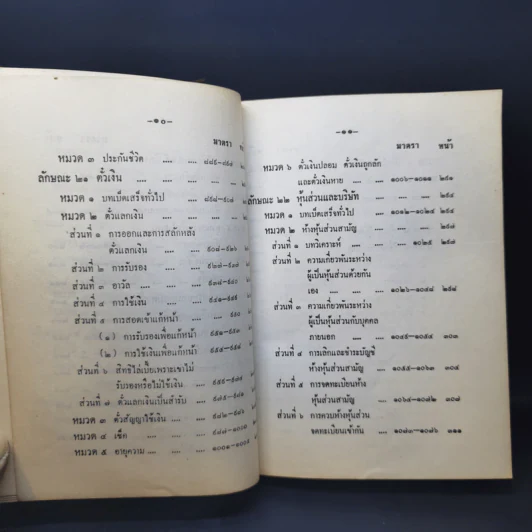 –๑๐–
มาตรา
หมวด ๓ ประกันชีวิต .... .... ๘๘๙–๘๙๗
ลักษณะ ๒๑ ตั๋วเงิน .... .... .... ....
หมวด ๑ บทเบ็ดเสร็จทั่วไป .... .... ๘๙๘–๙๐๗
หมวด ๒ ตั๋วแลกเงิน .... .... ....
ส่วนที่ ๑ การออกและการสลักหลัง
ตั๋วแลกเงิน .... .... ๙๐๘–๙๒๖
ส่วนที่ ๒ การรับรอง .... .... ๙๒๗–๙๓๗
ส่วนที่ ๓ อาวัล .... .... ๙๓๘–๙๔๐
ส่วนที่ ๔ การใช้เงิน .... .... ๙๔๑–๙๔๙
ส่วนที่ ๕ การสอดเข้าแก้หน้า ....
(๑) การรับรองเพื่อแก้หน้า ๙๕๑–๙๕๓
(๒) การใช้เงินเพื่อแก้หน้า ๙๕๔–๙๕๘
ส่วนที่ ๖ สิทธิไล่เบี้ยเพราะเขาไม่
รับรองหรือไม่ใช้เงิน .... ๙๕๙–๙๗๔
ส่วนที่ ๗ ตั๋วแลกเงินเป็นสำรับ .... ๙๗๕–๙๘๑
หมวด ๓ ตั๋วสัญญาใช้เงิน .... .... ๙๘๒–๙๘๖
หมวด ๔ เช็ค .... .... .... ๙๘๗–๑๐๐๐
หมวด ๕ อายุความ .... .... .... ๑๐๐๑–๑๐๐๕
–๑๑–
มาตรา หน้า
หมวด ๖ ตั๋วเงินปลอม ตั๋วเงินถูกลัก
และตั๋วเงินหาย .... .... ๑๐๐๖–๑๐๑๑
ลักษณะ ๒๒ หุ้นส่วนและบริษัท .... ....
หมวด ๑ บทเบ็ดเสร็จทั่วไป .... .... ๑๐๑๒–๑๐๒๔
หมวด ๒ ห้างหุ้นส่วนสามัญ .... ....
ส่วนที่ ๑ บทวิเคราะห์ .... .... ๑๐๒๕
ส่วนที่ ๒ ความเกี่ยวพันระหว่าง
ผู้เป็นหุ้นส่วนด้วยกัน
เอง .... .... .... ๑๐๒๖–๑๐๔๘
ส่วนที่ ๓ ความเกี่ยวพันระหว่าง
ผู้เป็นหุ้นส่วนกับบุคคล
ภายนอก .... .... ๑๐๔๙–๑๐๕๔ ๓๐๓
ส่วนที่ ๔ การเลิกและชำระบัญชี
ห้างหุ้นส่วนสามัญ .... ๑๐๕๕–๑๐๖๓ ๓๐๔
ส่วนที่ ๕ การจดทะเบียนห้าง
หุ้นส่วนสามัญ .... ๑๐๖๔–๑๐๗๒ ๓๐๗
ส่วนที่ ๖ การควบห้างหุ้นส่วน
จดทะเบียนเข้ากัน .... ๑๐๗๓–๑๐๗๖ ๓๑๑